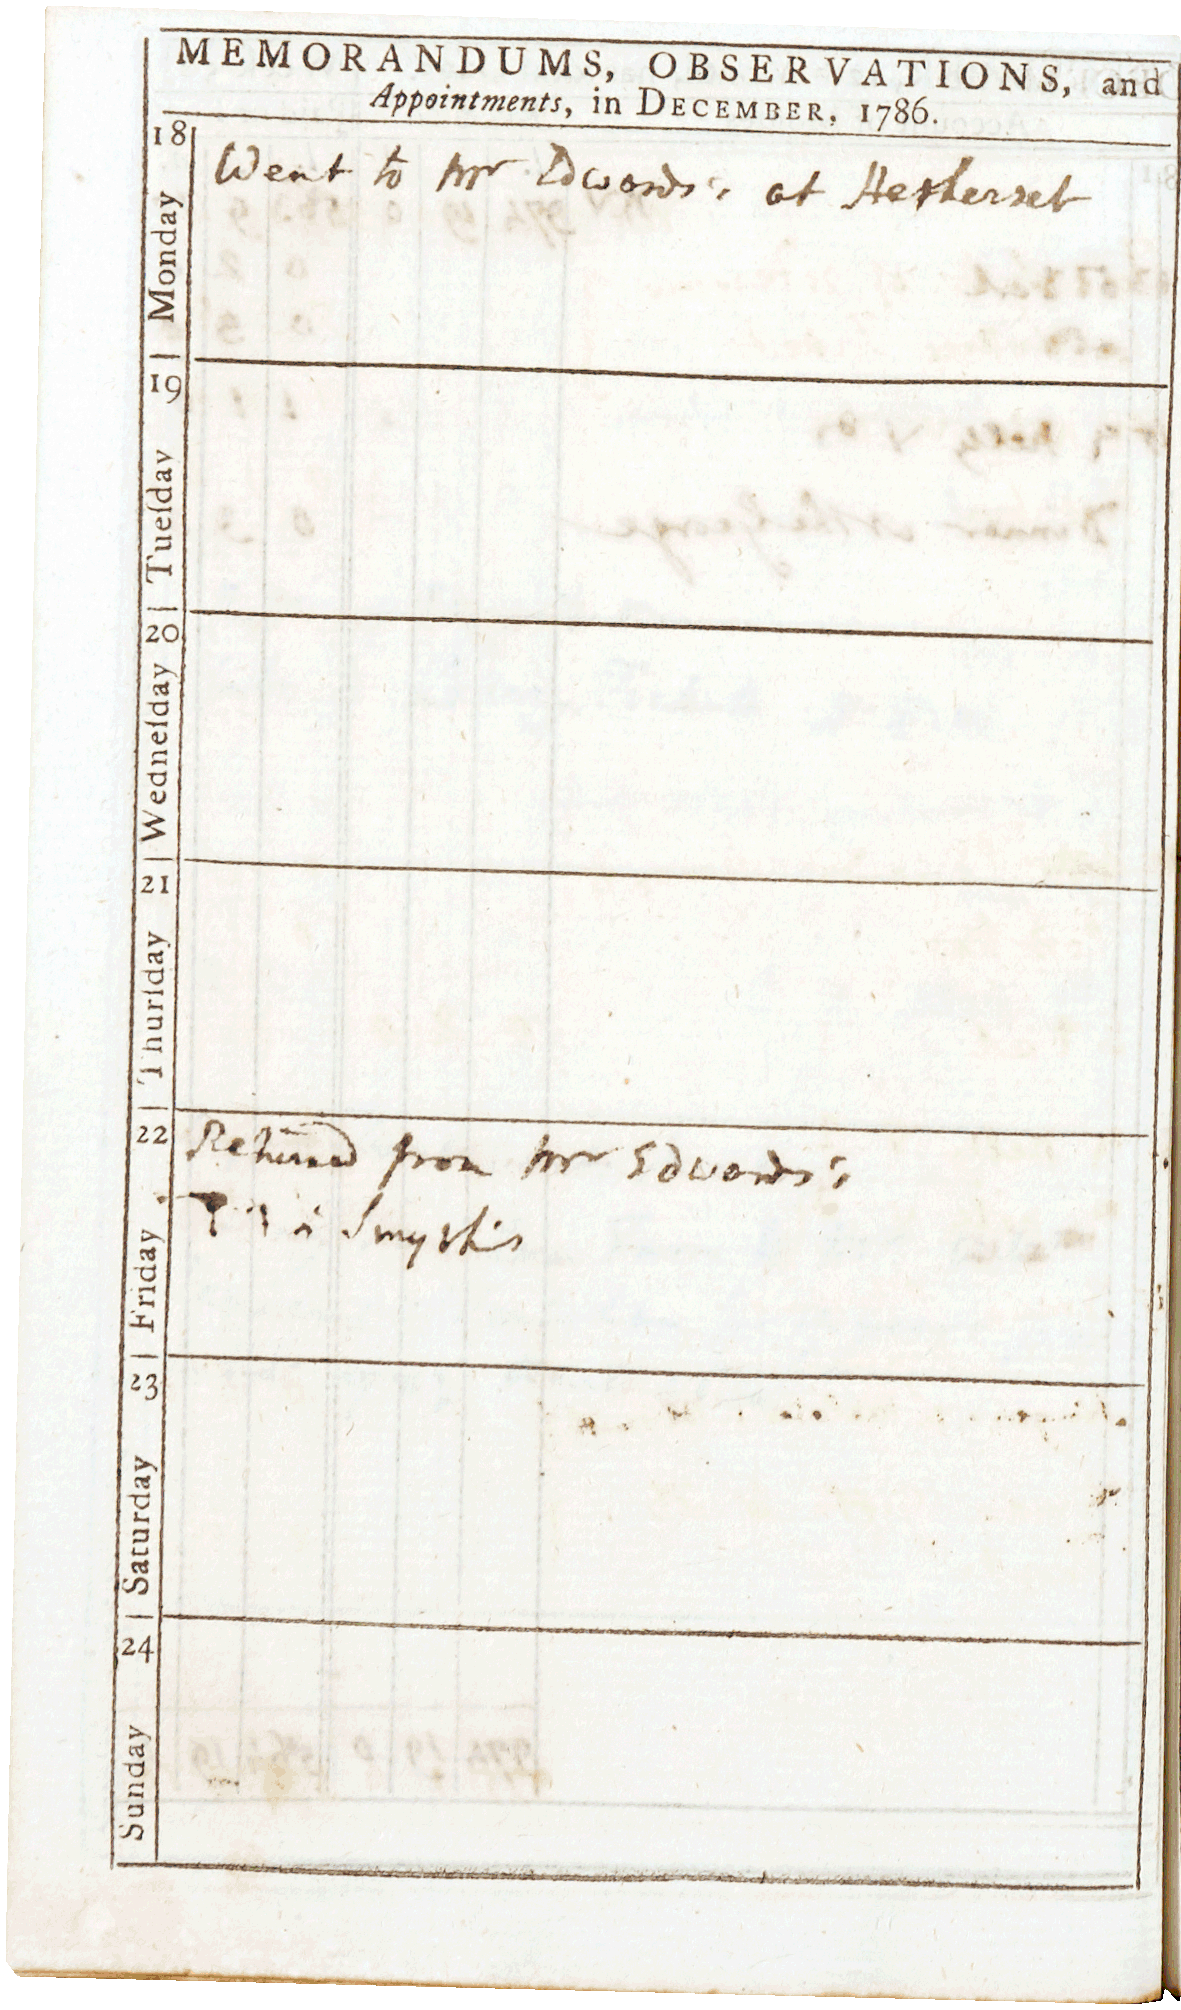 MEMORANDUMS, OBSERVATIONS, and
Appointments, in DECEMBER, 1786.
18
Monday
Went to Mr Edwards's at Hetherset
19
Tueſday
20
Wedneſday
21
Thurſday
22
Friday
Returned from Mr Edwards's
Smyth's
23
Saturday
24
Sunday